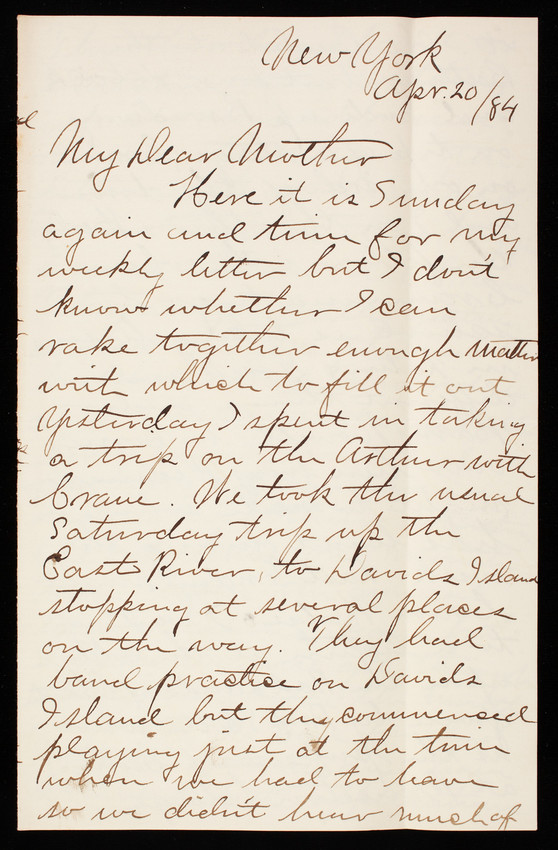 New York
Apr. 20/84
My Dear Mother
Here it is Sunday
again and time for my
weekly letter but I don't
know whether I can
rake together enough matter
with which to fill it out
Yesterday I spent in taking
a trip on the Arthur with
Crane. We took the usual
Saturday trip up the
East River, to Davids Island
stopping at several places
on the way. They had
band practise on Davids
Island but they commenced
playing just at the time
when we had to leave
so we didn't hear much of